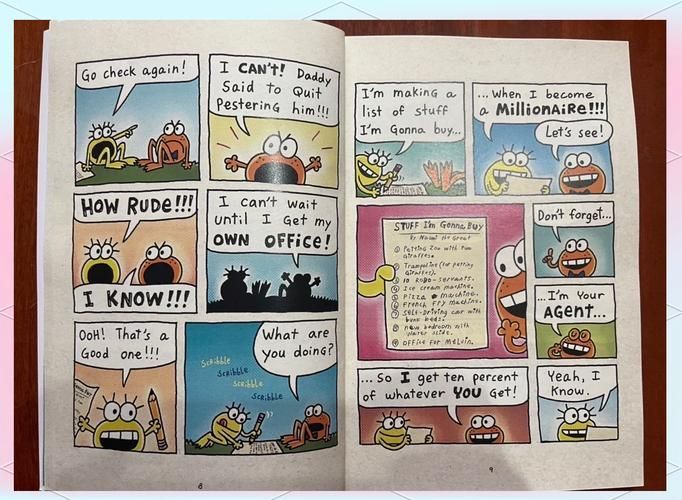 Go check again!
I CAN'T! Daddy
Said to Quit
Pestering him!!!
HOW RUDE!!!
I KNOW!!!
I can't wait
until I Get my
OWN OFFICE!
OOH! That's a
Good one!!!
What are
you doing?
SCRIbble
SCRIbble
SCRIbble
SCRIbble
8
I'm making a
list of stuff
I'm Gonna buy...
...When I become
a MillionAiRe!!!
Let's see!
STUFF I'm Gonna Buy
By Naomi the Great
① Petting Zoo with Fun
Giraffes.
② Trampoline (for petting
Giraffes).
③ 10 Robo-servants.
④ Ice cream machine.
⑤ Pizza machine.
⑥ French Fry Machine.
⑦ Self-Driving car with
bunk beds.
⑧ new bedroom with
water slide.
⑨ OFFice For Melvin.
Don't forget...
...I'm Your
AGENT...
...So I get ten percent
of whatever YOU Get!
Yeah, I
Know.
9